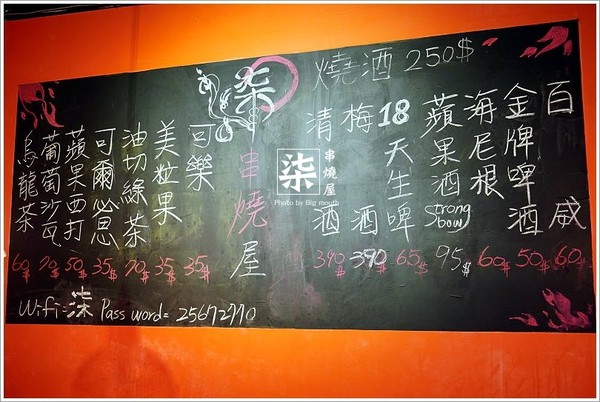 燒酒 250$
百威 60$
金牌啤酒 50$
海尼根 60$
蘋果酒 Strong bow 95$
18天生啤 65$
梅酒 390$
清酒 390$
柒 串燒屋
柒 串燒屋
Photo by Big mouth
可樂 35$
美粒果 35$
油切綠茶 70$
可爾必思 35$
蘋果西打 50$
葡萄沙瓦 70$
烏龍茶 60$
Wifi=柒 Password=25672770